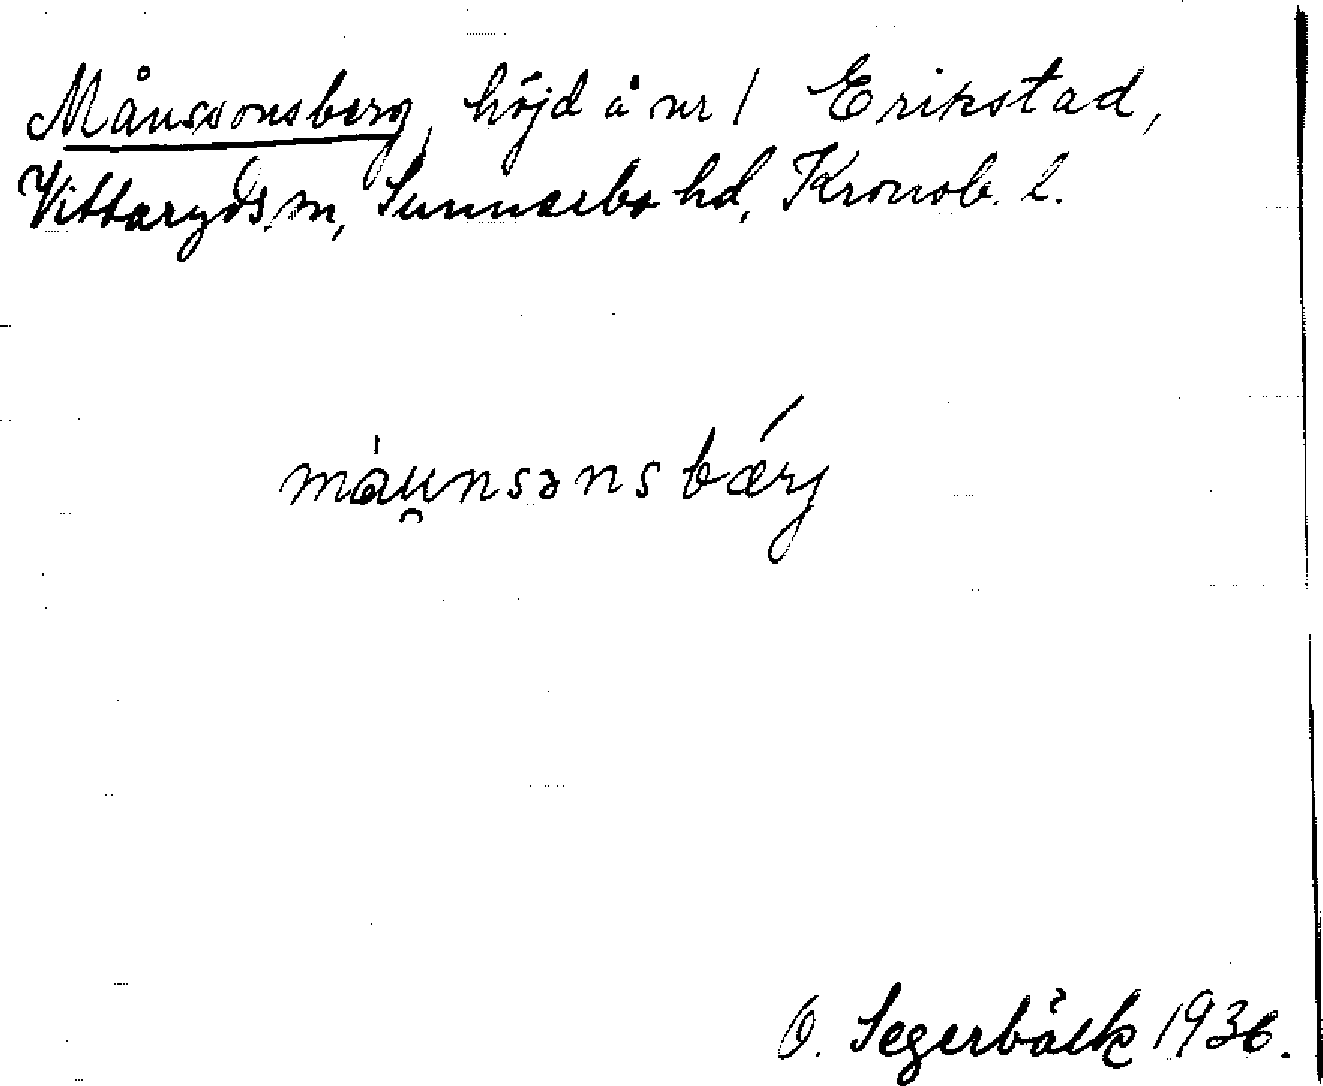 Månssonsberg, höjd å nr 1 Erikstad,
Vittaryds sn, Sunnerbo hd, Kronob. l.
máu̯nsənsbærj
O. Segerbäck 1936.